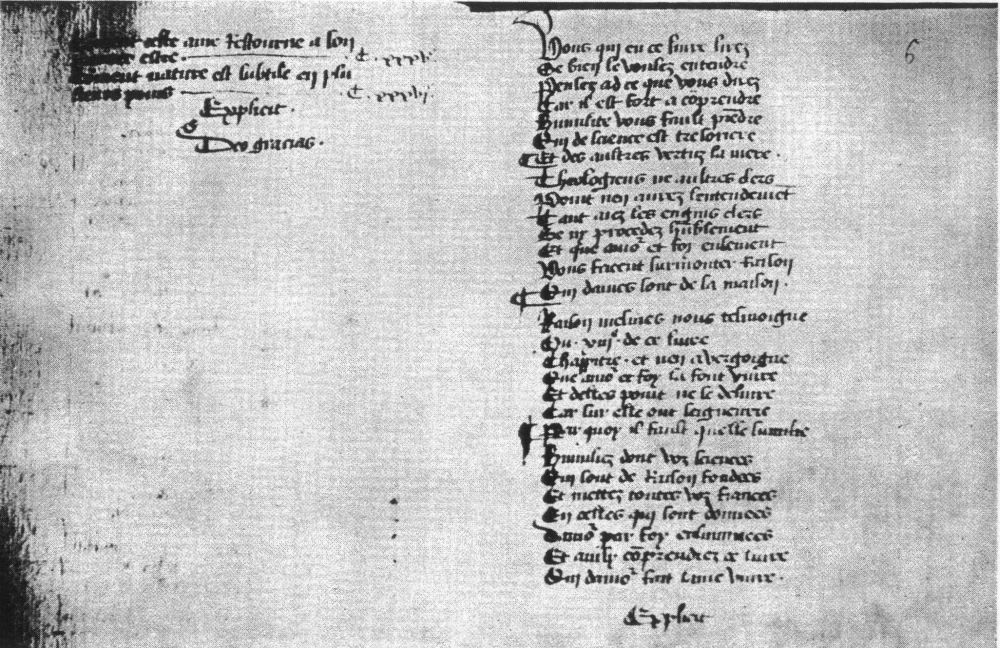 Comment ceste ame retourne a son
premier estre.
Comment nature est subtile en plu
sieurs poins
Explicit.
Deo gracias.
6
Vous qui en ce livre lirez
Se bien le voulez entendre
Pensez ad ce que vous direz
Car il est fort a cōprendre
Humilite vous fault prēdre
Qui de science est tresoriere
Et des aultres vertuz la mere.
Theologiens ne aultres clers
Point nen aurez lentendemēt
Tant aiez les engins clers
Se ny procedez hūblement
Et que amoʳ et foy enlement
Vous facent surmonter raison
Qui dames sont de la maison.
Raison mesmes nous tesmoigne
Ou .xiijᵉ. de ce livre
Chappitre. et nen a vergoigne
Que amoʳ et foy la font vivre
Et delles point ne se delivre
Car sur elle ont seignourie
Par quoy il fault quelle sumilie
Humiliez dont voz sciences
Qui sont de Raison fondees
Et mettez toutes voz fiances
En celles qui sont donnees
Damoʳ par foy enluminees
Et ainsy cōprendrez ce livre
Qui damoʳ fait lame vivre.
Explicit